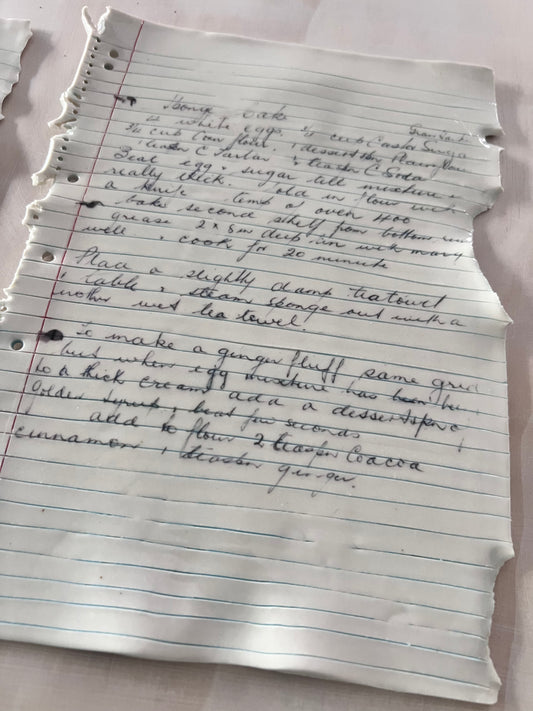 Honey
4 white eggs, 3/4 cup Castor Sugar
3/4 cub Corn flour, 1 dessertspn Plain flour
1 teaspn C Tartar 1/2 teaspn C Soda
Beat egg & sugar till mixture is
really thick. old in flour with
a knife. temp o oven 400
bake second shelf from bottom in
grease 2 x 8in deep tin with marg
well. cook for 20 minute
Place a slightly damp teatowel
table & steam sponge out with a
nother wet tea towel.
To make a ginger fluff same gred
but when egg mixture has been
to a thick cream add a dessertspn
Golden Syrup, beat few seconds
add to flour 2 teaspn Coacoa
cinnamon, teaspn ginger.